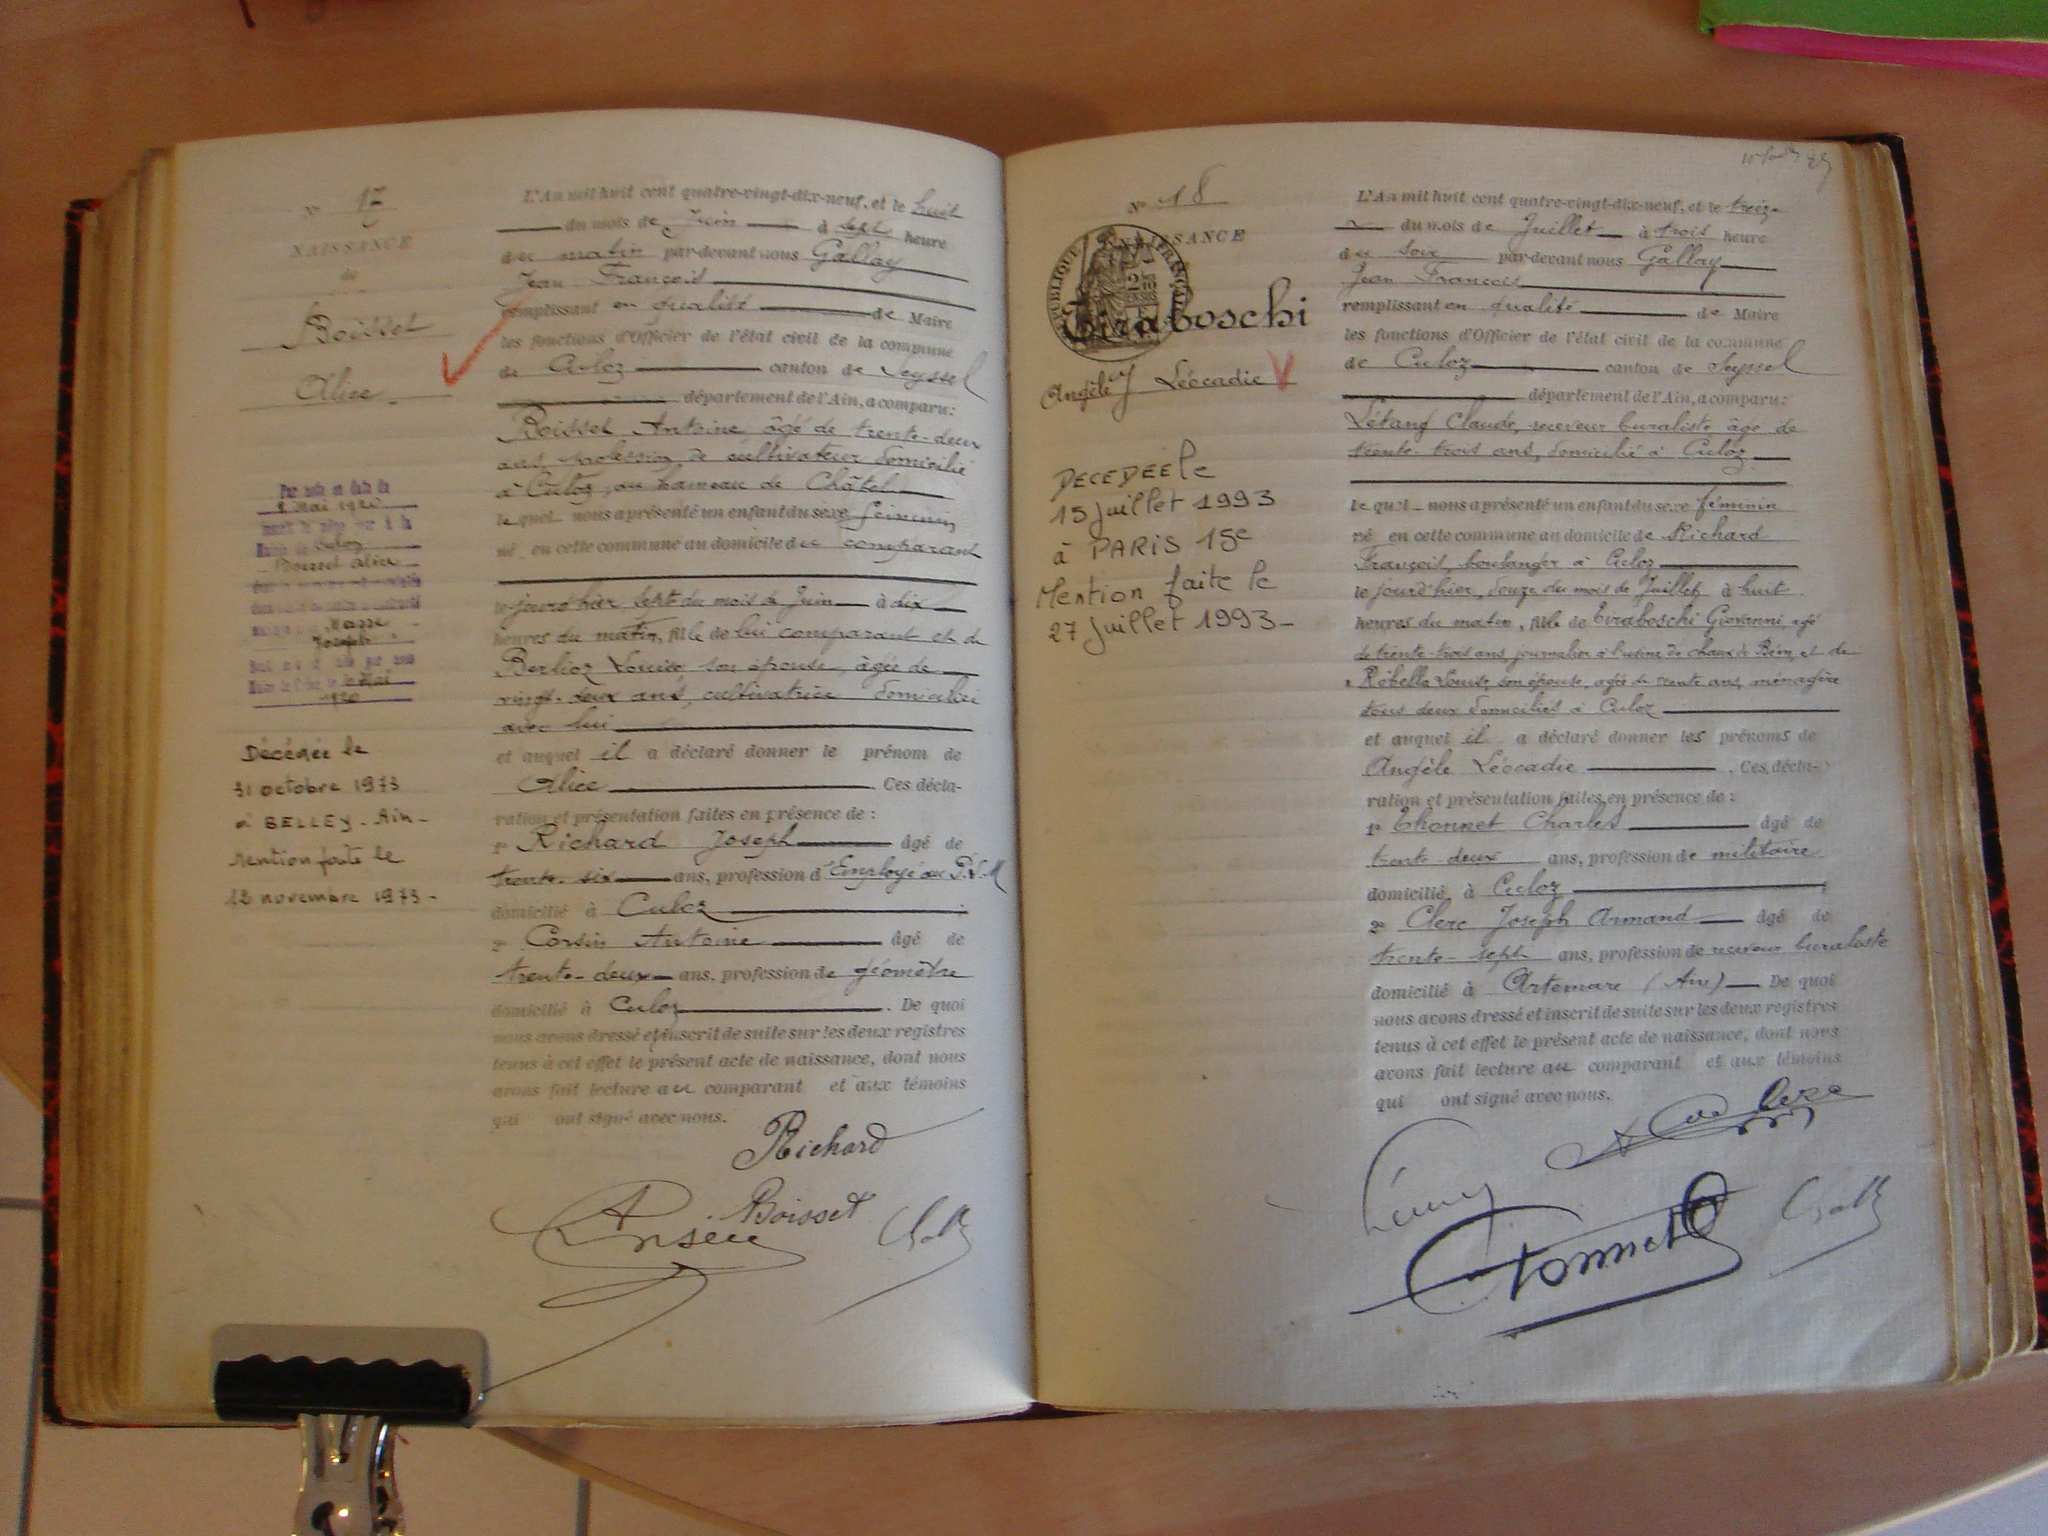 N° 17
NAISSANCE
de
Boisset
Alice
Par acte en date du
8 Mai 1920
Mairie de Culoz
Boisset Alice
Masse
Joseph
1920
Décédée le
31 octobre 1973
à BELLEY - Ain -
Mention faite le
12 novembre 1973 -
L'An mil huit cent quatre-vingt-dix-neuf, et le huit
du mois de Juin à sept heure
du matin par-devant nous Gallay
Jean François
remplissant en qualité de Maire
les fonctions d'Officier de l'état civil de la commune
de Culoz canton de Seyssel
département de l'Ain, a comparu:
Boisset Antoine âgé de trente-deux
ans, profession de cultivateur domicilié
à Culoz, au hameau de Châtel
lequel nous a présenté un enfant du sexe féminin
né en cette commune au domicile du comparant
le jourd'hier sept du mois de Juin à dix
heures du matin, fille de lui comparant et de
Berlioz Louise son épouse, âgée de
vingt-deux ans, cultivatrice domiciliée
avec lui
et auquel il a déclaré donner le prénom de
Alice. Ces décla-
ration et présentation faites en présence de :
1° Richard Joseph âgé de
trente-six ans, profession d'Employé au P.L.M
domicilié à Culoz
2° Corsin Antoine âgé de
trente-deux ans, profession de géomètre
domicilié à Culoz. De quoi
nous avons dressé et inscrit de suite sur les deux registres
tenus à cet effet le présent acte de naissance, dont nous
avons fait lecture au comparant et aux témoins
qui ont signé avec nous.
Richard
Boisset
N° 18
NAISSANCE
RÉPUBLIQUE FRANÇAISE
Tiraboschi
Angèle Léocadie
DECEDEE le
15 juillet 1993
à PARIS 15e
Mention faite le
27 juillet 1993 -
L'An mil huit cent quatre-vingt-dix-neuf, et le treize
du mois de Juillet à trois heure
du soir par-devant nous Gallay
Jean François
remplissant en qualité de Maire
les fonctions d'Officier de l'état civil de la commune
de Culoz canton de Seyssel
département de l'Ain, a comparu:
Létang Claude, receveur buraliste âgé de
trente-trois ans, domicilié à Culoz
lequel nous a présenté un enfant du sexe féminin
né en cette commune au domicile de Richard
François, boulanger à Culoz
le jourd'hier, douze du mois de Juillet à huit
heures du matin, fille de Tiraboschi Giovanni, âgé
de trente-trois ans, journalier à l'usine de chaux de Béon, et de
Ribella Louise, son épouse, âgée de trente ans, ménagère
tous deux domiciliés à Culoz
et auquel il a déclaré donner les prénoms de
Angèle Léocadie. Ces décla-
ration et présentation faites en présence de :
1° Thonnet Charles âgé de
trente-deux ans, profession de militaire
domicilié à Culoz
2° Clerc Joseph Armand âgé de
trente-sept ans, profession de receveur buraliste
domicilié à Artemare (Ain) De quoi
nous avons dressé et inscrit de suite sur les deux registres
tenus à cet effet le présent acte de naissance, dont nous
avons fait lecture au comparant et aux témoins
qui ont signé avec nous.